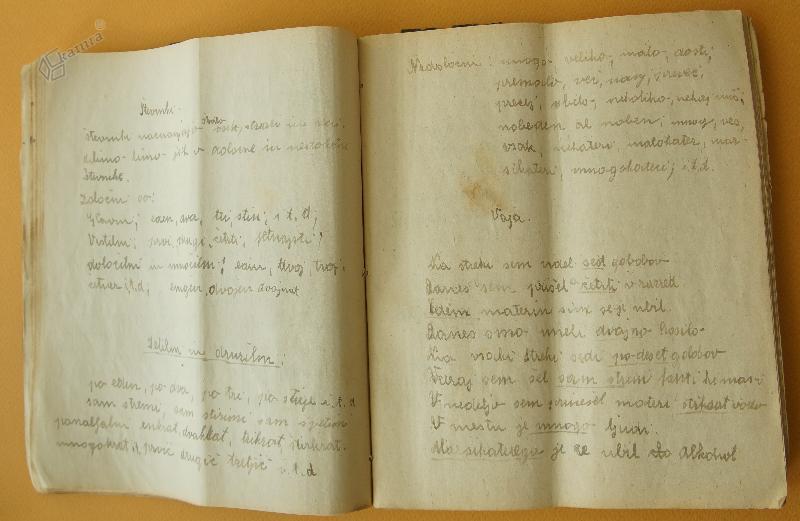 kamra
Števniki.
število
števniki naznanjajo vseh, stvari in reči.
delimo jih v določne in nedoločne
števnike.
Določni so:
Glavni; eden, dva, tri, štiri, i. t. d;
Vrstilni; prvi, drugi, četrti,
določilni in množilni; edin, dvoj, troj,
četver i.t.d; enojen, dvojen dvojnat
Delilni in družilni:
po eden, po dva, po tri, po štirje i. t. d
sam s tremi, sam štirimi sam s petimi
ponavljalni enkrat, dvakrat, trikrat, štirikrat.
mnogokrat prvič drugič tretjič i. t. d
Nedoločni: mnogo veliko, malo, dosti,
premalo, več, manj, preveč,
precej, obilo, nekoliko, nekaj, nič,
nobeden al noben; mnog, ves,
vsak, nekateri, malokater, mar-
sikateri, mnogokateri; i. t. d.
Vaja.
Na strehi sem videl sedem golobov
Danes sem prišel četrti v razred.
Eden materin sin se je ubil.
Danes smo imeli dvojno kosilo
Na vsaki strehi sedi po deset golobov
Včeraj sem šel sam s tremi fanti k maši
V nedeljo sem prinesel materi trikrat vodo
V mestu je mnogo ljudi.
Marsikaterega je že ubil alkohol